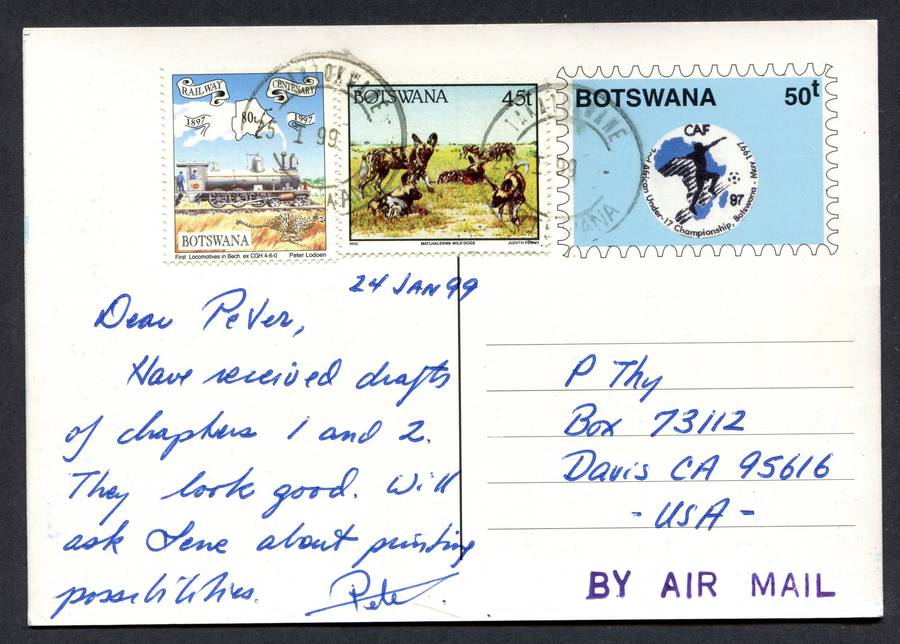 RAILWAY CENTENARY
1897 80t 1997
BOTSWANA
First Locomotives in Bech. ex CGH 4-6-0 Peter Lodoen
BOTSWANA 45t
1992 MATLHALERWA WILD DOGS JUDITH PENNY
BOTSWANA 50t
CAF
97
2nd African Under-17 Championship, Botswana - May 1997
25 I 99
24 JAN 99
Dear Peter,
Have received drafts
of chapters 1 and 2.
They look good. Will
ask Lene about printing
possibilities. Peter.
P Thy
Box 73112
Davis CA 95616
- USA -
BY AIR MAIL